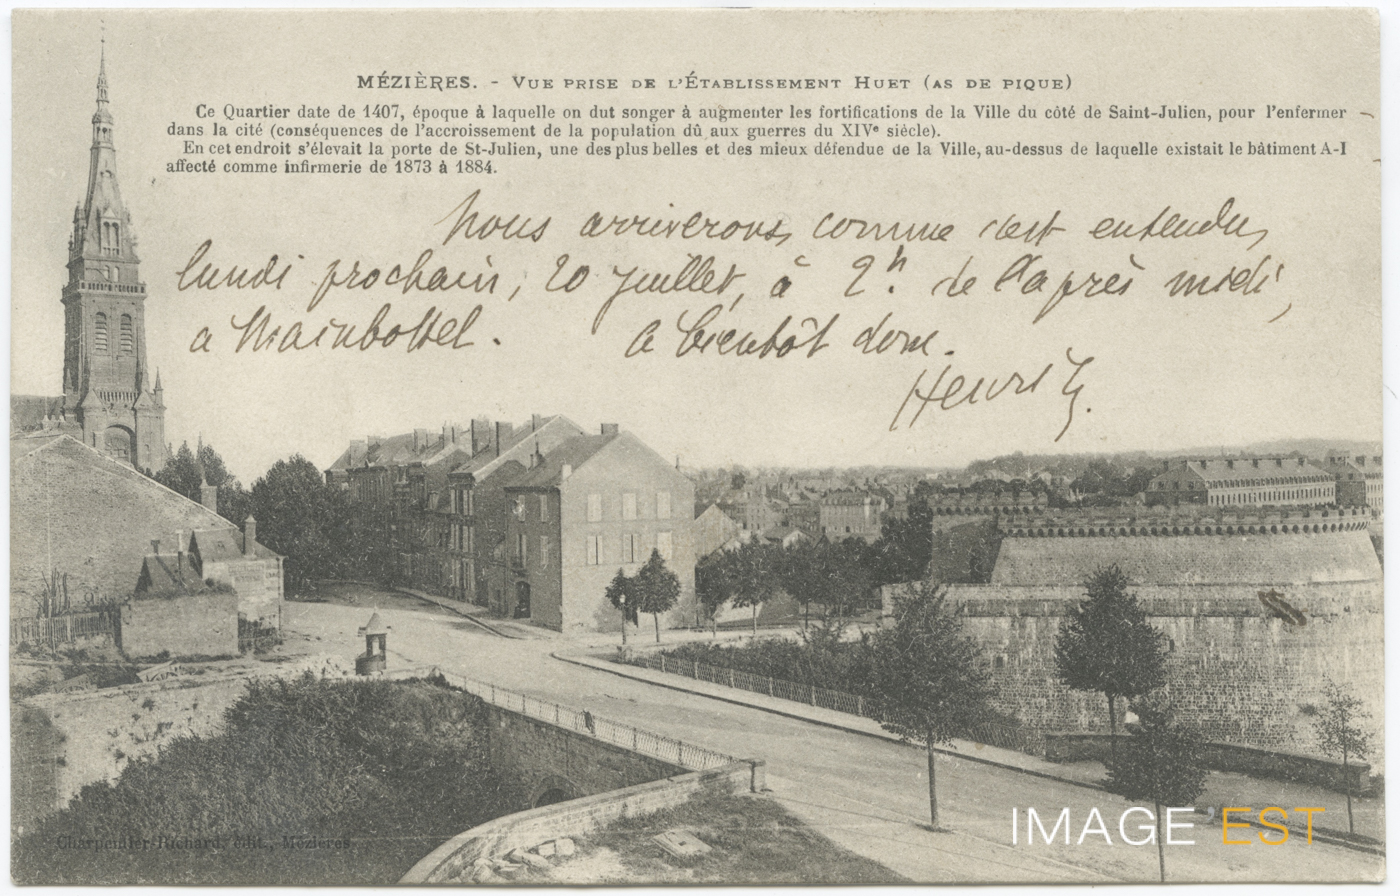 MÉZIÈRES. - VUE PRISE DE L'ÉTABLISSEMENT HUET (AS DE PIQUE)
Ce Quartier date de 1407, époque à laquelle on dut songer à augmenter les fortifications de la Ville du côté de Saint-Julien, pour l'enfermer
dans la cité (conséquences de l'accroissement de la population dû aux guerres du XIVe siècle).
En cet endroit s'élevait la porte de St-Julien, une des plus belles et des mieux défendue de la Ville, au-dessus de laquelle existait le bâtiment A-I
affecté comme infirmerie de 1873 à 1884.
Nous arriverons, comme c'est entendu,
lundi prochain, 20 juillet, à 2h. de l'après midi,
a Mainbottel. A bientôt donc.
Henri
Charpentier-Richard, édit., Mézières
IMAGE'EST